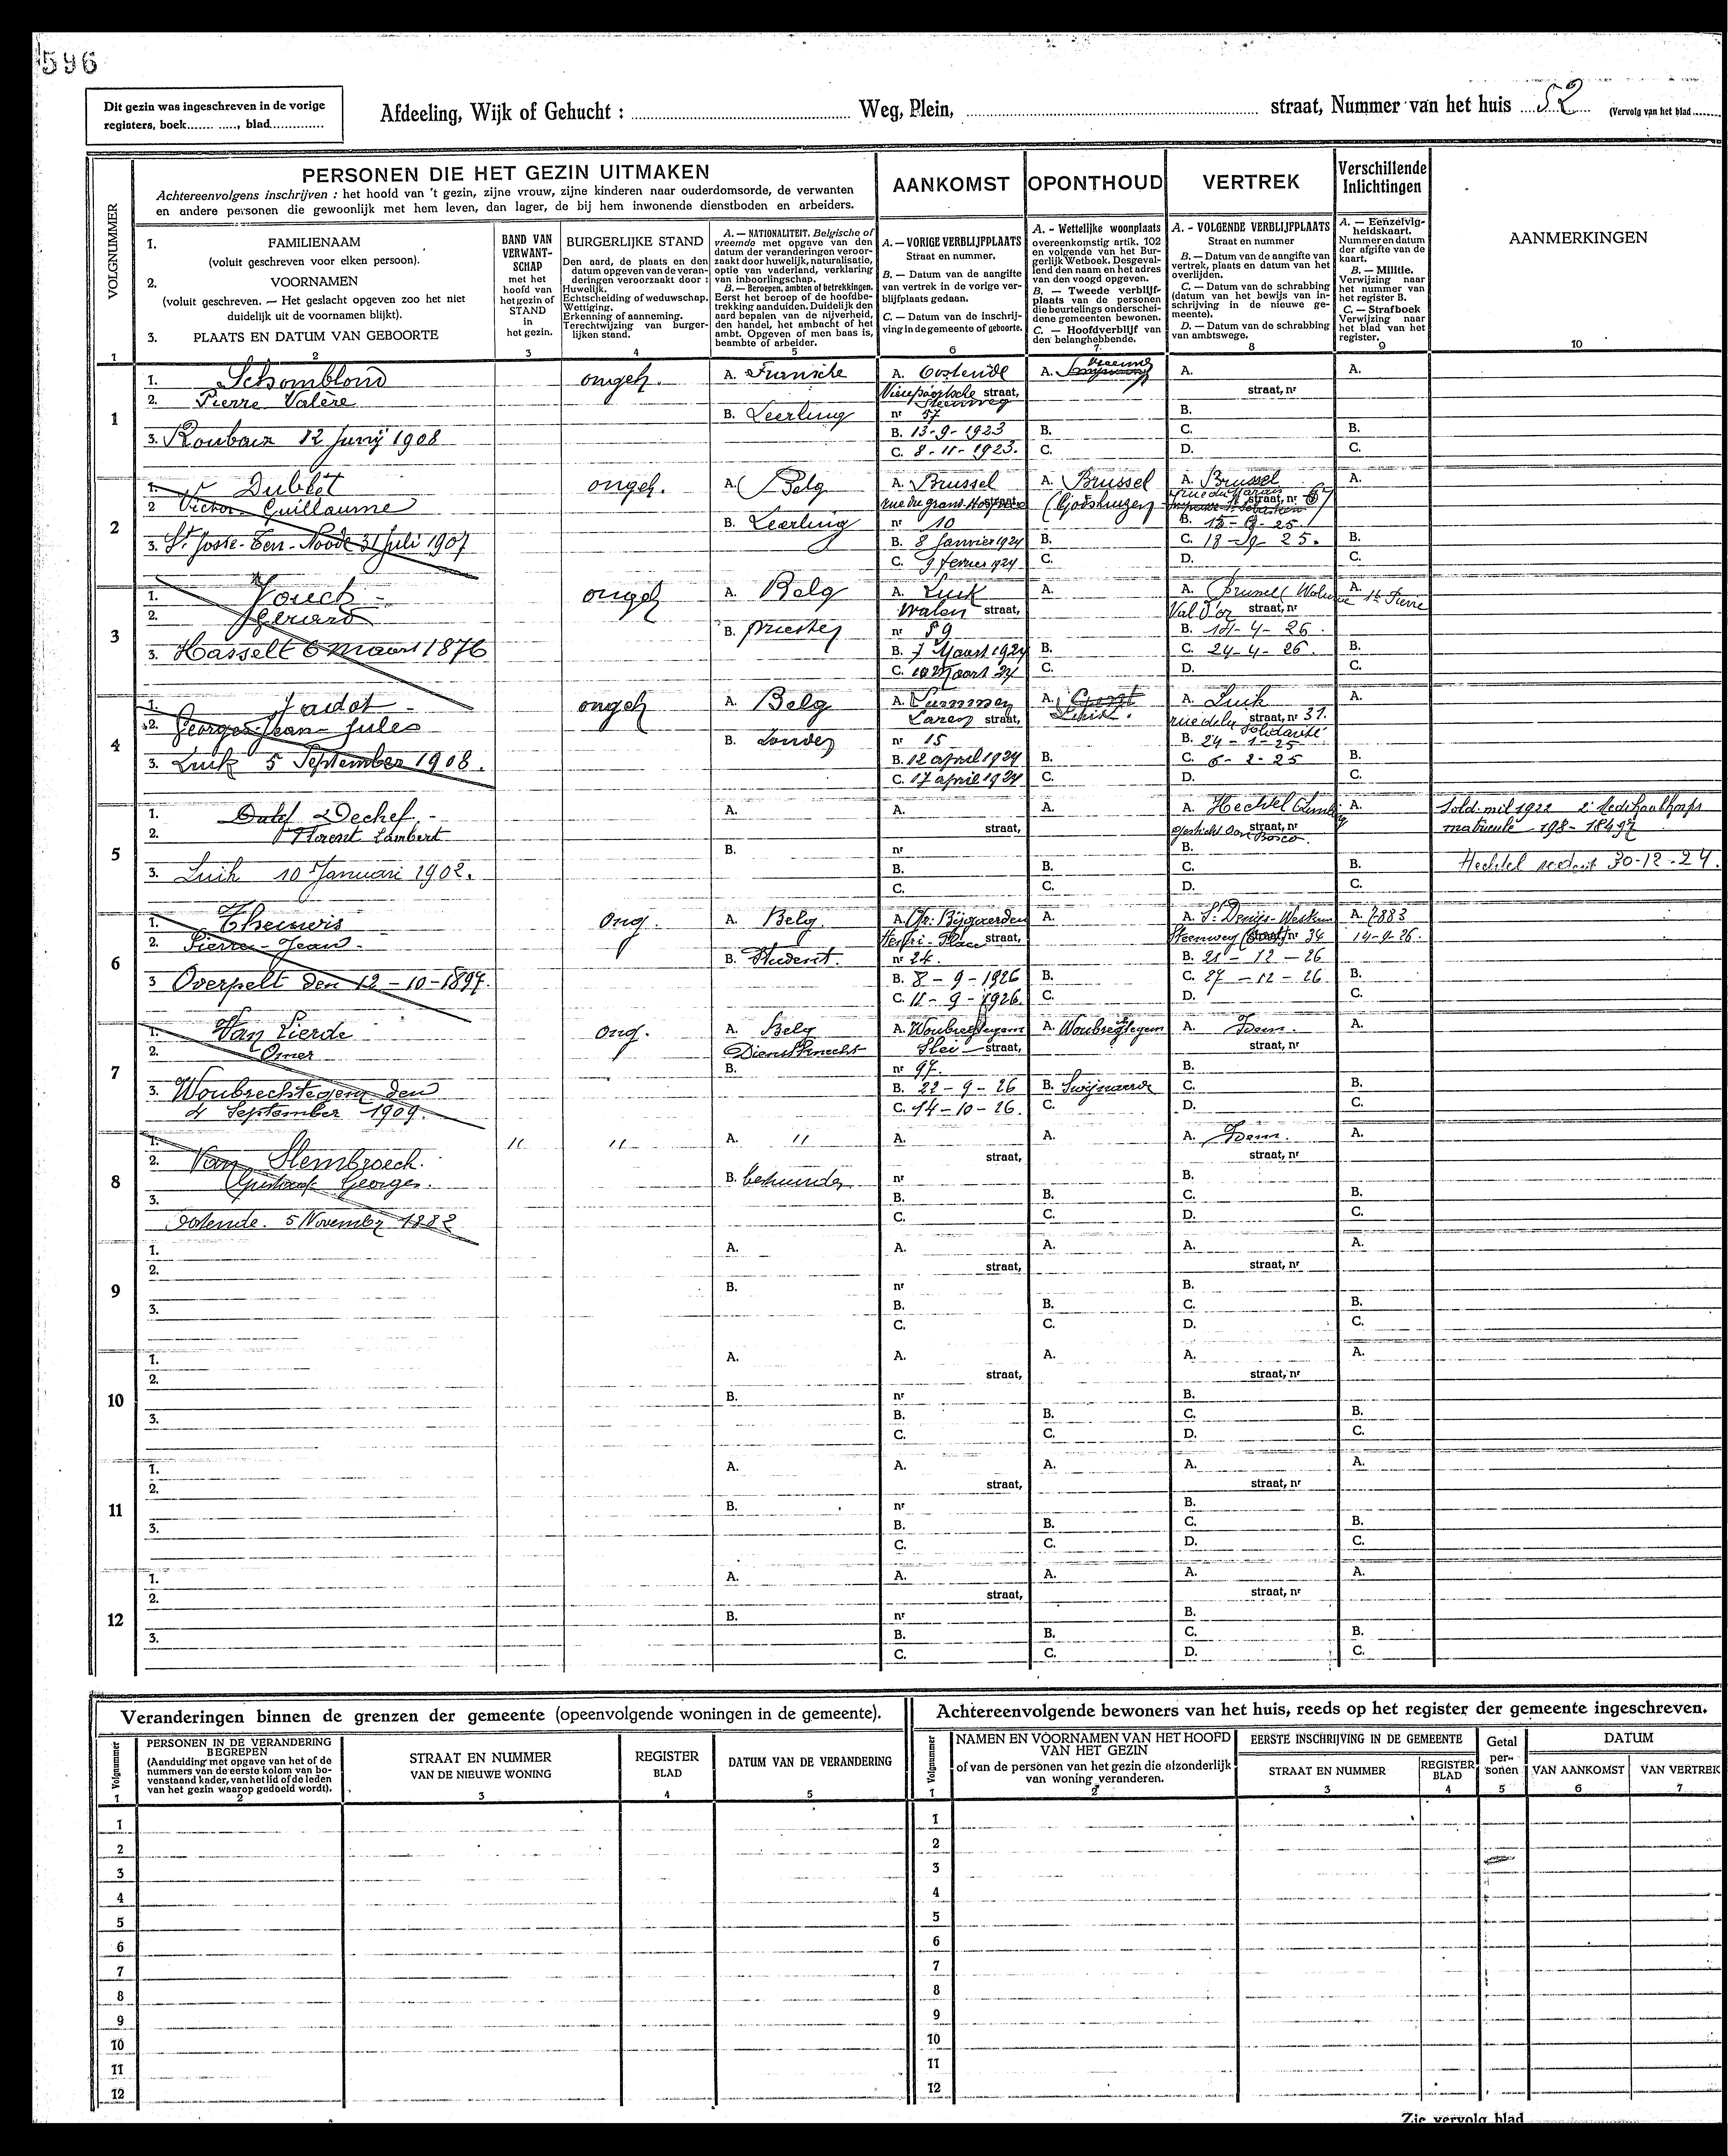 596
Dit gezin was ingeschreven in de vorige
registers, boek....... ....., blad.............
Afdeeling, Wijk of Gehucht : Weg, Plein, straat, Nummer van het huis 52 (Vervolg van het blad
PERSONEN DIE HET GEZIN UITMAKEN
Achtereenvolgens inschrijven : het hoofd van 't gezin, zijne vrouw, zijne kinderen naar ouderdomsorde, de verwanten
en andere personen die gewoonlijk met hem leven, dan lager, de bij hem inwonende dienstboden en arbeiders.
VOLGNUMMER
1
1. FAMILIENAAM
(voluit geschreven voor elken persoon).
2. VOORNAMEN
(voluit geschreven. — Het geslacht opgeven zoo het niet
duidelijk uit de voornamen blijkt).
3. PLAATS EN DATUM VAN GEBOORTE
2
BAND VAN
VERWANT-
SCHAP
met het
hoofd van
het gezin of
STAND
in
het gezin.
3
BURGERLIJKE STAND
Den aard, de plaats en den
datum opgeven van de veran-
deringen veroorzaakt door :
Huwelijk.
Echtscheiding of weduwschap.
Wettiging.
Erkenning of aanneming.
Terechtwijzing van burger-
lijken stand.
4
A. — NATIONALITEIT. Belgische of
vreemde met opgave van den
datum der veranderingen veroor-
zaakt door huwelijk, naturalisatie,
optie van vaderland, verklaring
van inboorlingschap.
B. — Beroepen, ambten of betrekkingen.
Eerst het beroep of de hoofdbe-
trekking aanduiden. Duidelijk den
aard bepalen van de nijverheid,
den handel, het ambacht of het
ambt. Opgeven of men baas is,
beambte of arbeider.
5
AANKOMST
A. — VORIGE VERBLIJFPLAATS
Straat en nummer.
B. — Datum van de aangifte
van vertrek in de vorige ver-
blijfplaats gedaan.
C. — Datum van de inschrij-
ving in de gemeente of geboorte.
6
OPONTHOUD
A. - Wettelijke woonplaats
overeenkomstig artik. 102
en volgende van het Bur-
gerlijk Wetboek. Desgeval-
lend den naam en het adres
van den voogd opgeven.
B. — Tweede verblijf-
plaats van de personen
die beurtelings onderschei-
dene gemeenten bewonen.
C. — Hoofdverblijf van
den belanghebbende.
7.
VERTREK
A. - VOLGENDE VERBLIJFPLAATS
Straat en nummer
B. — Datum van de aangifte van
vertrek, plaats en datum van het
overlijden.
C. — Datum van de schrabbing
(datum van het bewijs van in-
schrijving in de nieuwe ge-
meente).
D. — Datum van de schrabbing
van ambtswege.
8
Verschillende
Inlichtingen
A. — Eenzelvig-
heidskaart.
Nummer en datum
der afgifte van de
kaart.
B. — Militie.
Verwijzing naar
het nummer van
het register B.
C. — Strafboek
Verwijzing naar
het blad van het
register.
9
AANMERKINGEN
10
1
1. Schomblond ongeh. A. Fransche A. Oostende A. A. A.
2. Pierre Valère Nieupoortsche straat, Steenweg straat, nr
B. Leerling nr 57 B.
3. Roubaix 12 Junij 1908 B. 13-9-1923 B. C. B.
C. 8-11-1923. C. D. C.
2
1. Dublet ongeh. A. Belg A. Brussel A. Brussel A. Brussel A.
2 Victor Guillaume rue du grand Hospice straat, (Godshuizen rue du Marais straat, nr 67
B. Leerling nr 10 B. 15-9-25
3. St Josse-Ten-Noode 31 Juli 1907 B. 8 Janvier 1924 B. C. 18-9-25. B.
C. 9 fevrier 1924 C. D. C.
3
1. ongeh A. Belg A. Luik A. A. Brussel Woluwe St. Pierre A.
2. Gerard Walen straat, Val d'or straat, nr
B. priester nr 59 B. 14-4-26.
3. Hasselt 6 Maart 1876 B. 7 Maart 1924 B. C. 24-4-26. B.
C. 10 Maart 24 C. D. C.
4
1. Jadot ongeh A. Belg A. Lummen A. Luik. A. Luik A.
2. Georges Jean-Jules Laren straat, rue de la Solidarité straat, nr 31.
B. zonder nr 15 B. 24-1-25
3. Luik 5 September 1908. B. 12 april 1924 B. C. 6-2-25 B.
C. 17 april 1924 C. D. C.
5
1. Dechef. A. A. A. A. Hechtel Limburg A. Sold. mil 1922
2. Florent Lambert straat, Gesticht Don Bosco. straat, nr matricule 198-18497
B. nr B.
3. Luik 10 Januari 1902. B. B. C. B. Hechtel 30-12-24.
C. C. D. C.
6
1. Theuwis ong. A. Belg. A. Gr: Bijgaerden A. A. St Denijs-Westrem A. 7883
2. Pierre-Jean- Henri-Place straat, Steenweg straat, nr 34 14-9-26.
B. Student. nr 24. B. 21-12-26
3 Overpelt den 12-10-1897. B. 8-9-1926 B. C. 27-12-26 B.
C. 11-9-1926. C. D. C.
7
1. Van Lierde ong. A. Belg A. Woubrechtegem A. Woubrechtegem A. Idem. A.
2. Omer Dienstknecht Slei straat, straat, nr
B. nr 97. B.
3. Woubrechtegem den B. 22-9-26 B. Swijnaerde C. B.
4 September 1909. C. 14-10-26. C. D. C.
8
1. " " A. " A. A. A. Idem. A.
2. Van Slembroeck. straat, straat, nr
Gustaaf Georges. B. nr B.
3. B. B. C. B.
Ostende. 5 November 1882 C. C. D. C.
9
1. A. A. A. A. A.
2. straat, straat, nr
B. nr B.
3. B. B. C. B.
C. C. D. C.
10
1. A. A. A. A. A.
2. straat, straat, nr
B. nr B.
3. B. B. C. B.
C. C. D. C.
11
1. A. A. A. A. A.
2. straat, straat, nr
B. nr B.
3. B. B. C. B.
C. C. D. C.
12
1. A. A. A. A. A.
2. straat, straat, nr
B. nr B.
3. B. B. C. B.
C. C. D. C.
Veranderingen binnen de grenzen der gemeente (opeenvolgende woningen in de gemeente).
Volgnummer
1
PERSONEN IN DE VERANDERING
BEGREPEN
(Aanduiding met opgave van het of de
nummers van de eerste kolom van bo-
venstaand kader, van het lid of de leden
van het gezin waarop gedoeld wordt).
2
STRAAT EN NUMMER
VAN DE NIEUWE WONING
3
REGISTER
BLAD
4
DATUM VAN DE VERANDERING
5
1
2
3
4
5
6
7
8
9
10
11
12
Achtereenvolgende bewoners van het huis, reeds op het register der gemeente ingeschreven.
Volgnummer
1
NAMEN EN VOORNAMEN VAN HET HOOFD
VAN HET GEZIN
of van de personen van het gezin die afzonderlijk
van woning veranderen.
2
EERSTE INSCHRIJVING IN DE GEMEENTE
STRAAT EN NUMMER
3
REGISTER
BLAD
4
Getal
per-
sonen
5
DATUM
VAN AANKOMST
6
VAN VERTREK
7
1
2
3
4
5
6
7
8
9
10
11
12
Zie vervolg blad